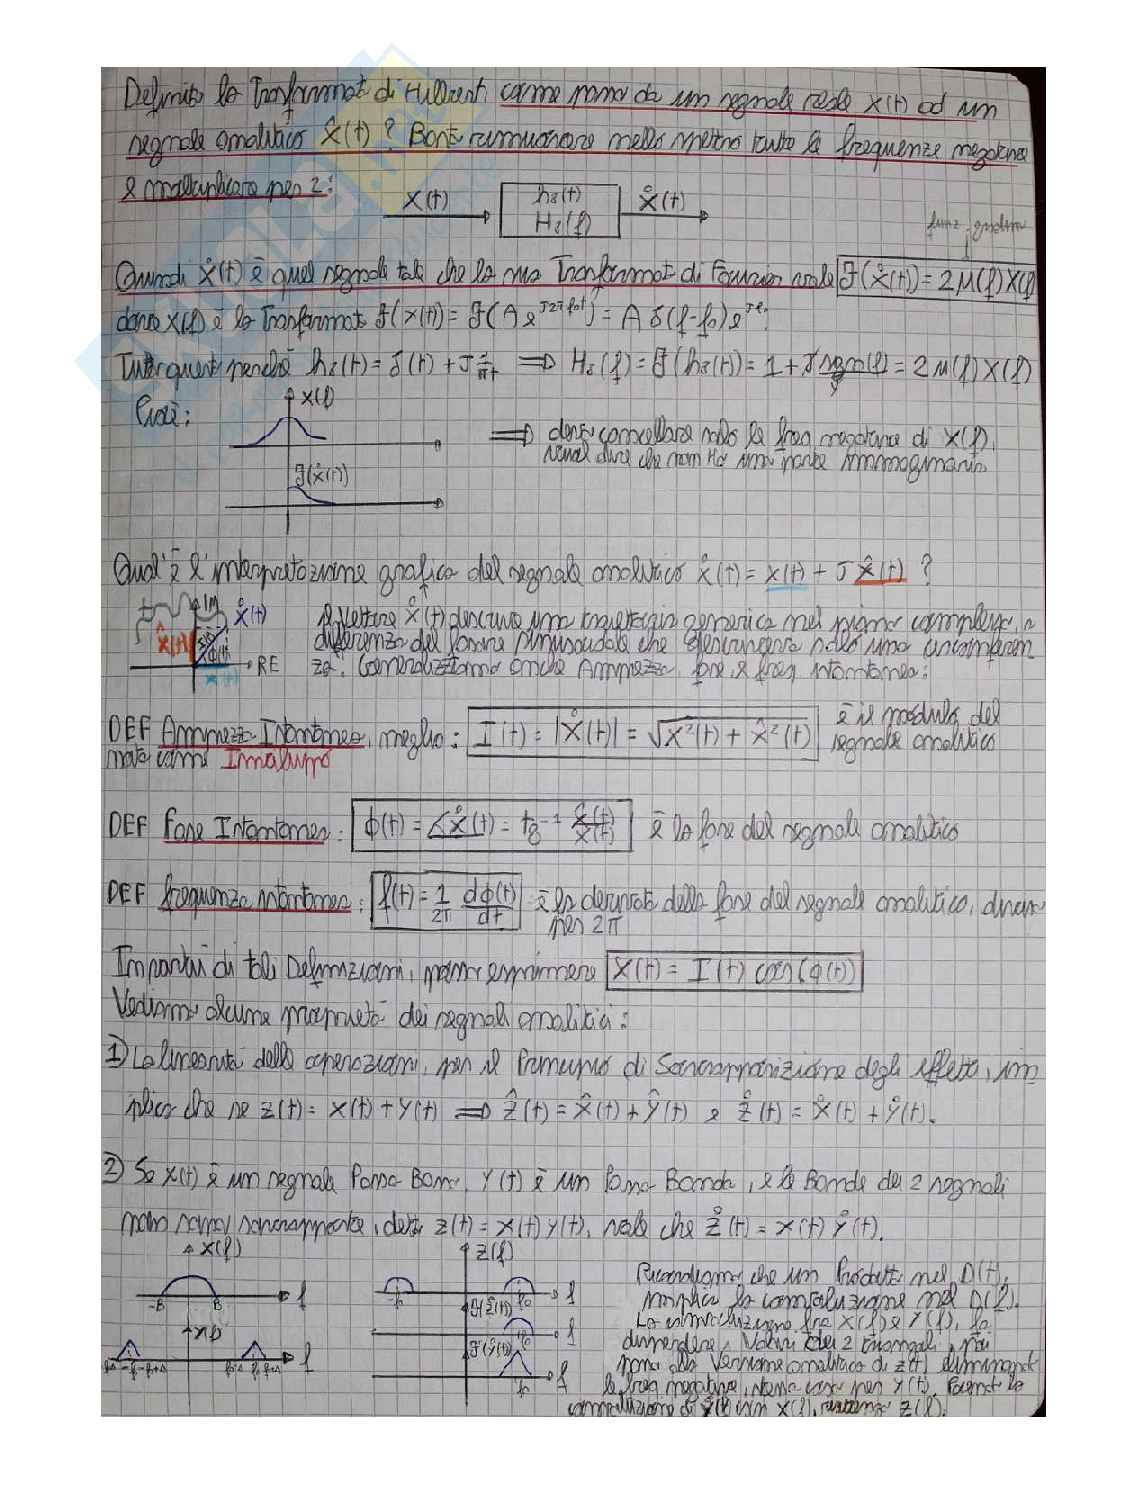 Definita la Trasformata di Hilbert come passo da un segnale reale x(t) ad un
segnale analitico x̊(t)? Basta rimuovere nello spettro tutte le frequenze negative
e moltiplicare per 2:
x(t) h₈(t) x̊(t)
H₈(f)
funz. gradino
Quindi x̊(t) è quel segnale tale che la sua Trasformat di Fourier vale F(x̊(t)) = 2 μ(f) X(f)
dove X(f) è la Trasformat F(x(t)) = F(A e^{J2πf₀t}) = A δ(f-f₀) e^{Jφ}.
Tutto questo perché h₈(t) = δ(t) + J 1/πt ⟹ H₈(f) = F(h₈(t)) = 1 + J sgn(f)/J = 2 μ(f) X(f)
Cioè: X(f)
⟹ devo cancellare solo le freq negative di X(f),
vuol dire che non ha una parte immaginaria
F(x̊(t))
Qual'è l'interpretazione grafica del segnale analitico x̊(t) = x(t) + J x̂(t) ?
IM x̊(t) Il vettore x̊(t) descrive una traiettoria generica nel piano complesso, a
x̂(t) φ(t) differenza del fasore sinusoidale che descriveva solo una circonferen
RE x(t) za. Generalizziamo anche Ampiezza, fase, e freq istantanea:
DEF Ampiezza Istantanea, meglio: I(t) = |x̊(t)| = √x²(t) + x̂²(t) è il modulo del
nota come Inviluppo segnale analitico
DEF fase Istantanea: φ(t) = ∠x̊(t) = tg⁻¹ x̂(t)/x(t) è la fase del segnale analitico
DEF frequenza istantanea: f(t) = 1/2π dφ(t)/dt è la derivata della fase del segnale analitico, diviso
per 2π
Importanti di tali Definizioni, posso esprimere x(t) = I(t) cos(φ(t))
Vediamo alcune proprietà dei segnali analitici:
1) La linearità delle operazioni, per il Principio di Sovrapposizione degli effetti, im
plica che se z(t) = x(t) + y(t) ⟹ ẑ(t) = x̂(t) + ŷ(t) e z̊(t) = x̊(t) + ẙ(t).
2) Se x(t) è un segnale Passa Basso, y(t) è un Passa Banda, e le Bande dei 2 segnali
non sono sovrapposte, detto z(t) = x(t) y(t), vale che z̊(t) = x(t) ẙ(t).
X(f) Z(f)
-B B f -f₀ f₀ f
F(z̊(t)) f₀ f
F(ẙ(t)) f₀ f
Ricordiamo che un Prodotto nel D(t),
implica la convoluzione nel D(f).
La convoluzione fra X(f) e Y(f), fa
le freq negative, stessa cosa per Y(t). Facendo la